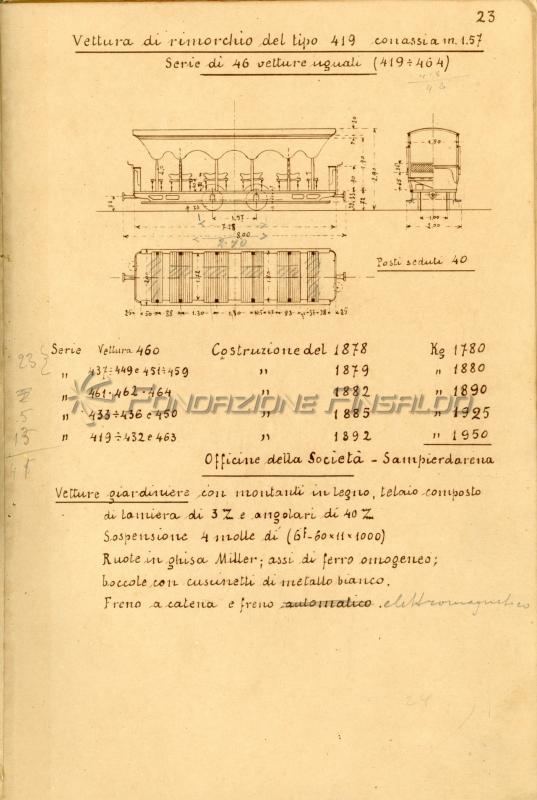 23
Vettura di rimorchio del tipo 419 con assi a m. 1.57
Serie di 46 vetture uguali (419÷464)
1.57
7.28
8.00
2.70
1.30
1.00
2.00
Posti seduti 40
25 50 88 1.30 1.80
Serie Vettura 460 Costruzione del 1878 Kg 1780
23
„ 437÷449 e 451÷459 „ 1879 „ 1880
„ 461·462·464 „ 1882 „ 1890
FONDAZIONE ANSALDO
5 „ 433÷436 e 450 „ 1885 „ 1925
13 „ 419÷432 e 463 „ 1892 „ 1950
Officine della Società - Sampierdarena
Vetture giardiniere con montanti in legno, telaio composto
di lamiera di 3 Z e angolari di 40 Z
Sospensione 4 molle di (6f-60×11×1000)
Ruote in ghisa Miller; assi di ferro omogeneo;
boccole con cuscinetti di metallo bianco.
Freno a catena e freno automatico. elettromagnetico
24